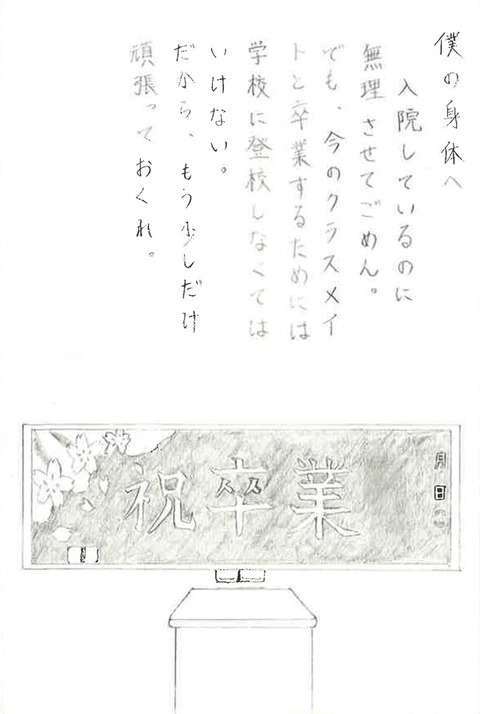 僕の身体へ
入院しているのに
無理させてごめん。
でも、今のクラスメイ
トと卒業するためには
学校に登校しなくては
いけない。
だから、もう少しだけ
頑張っておくれ。
祝卒業
月
日